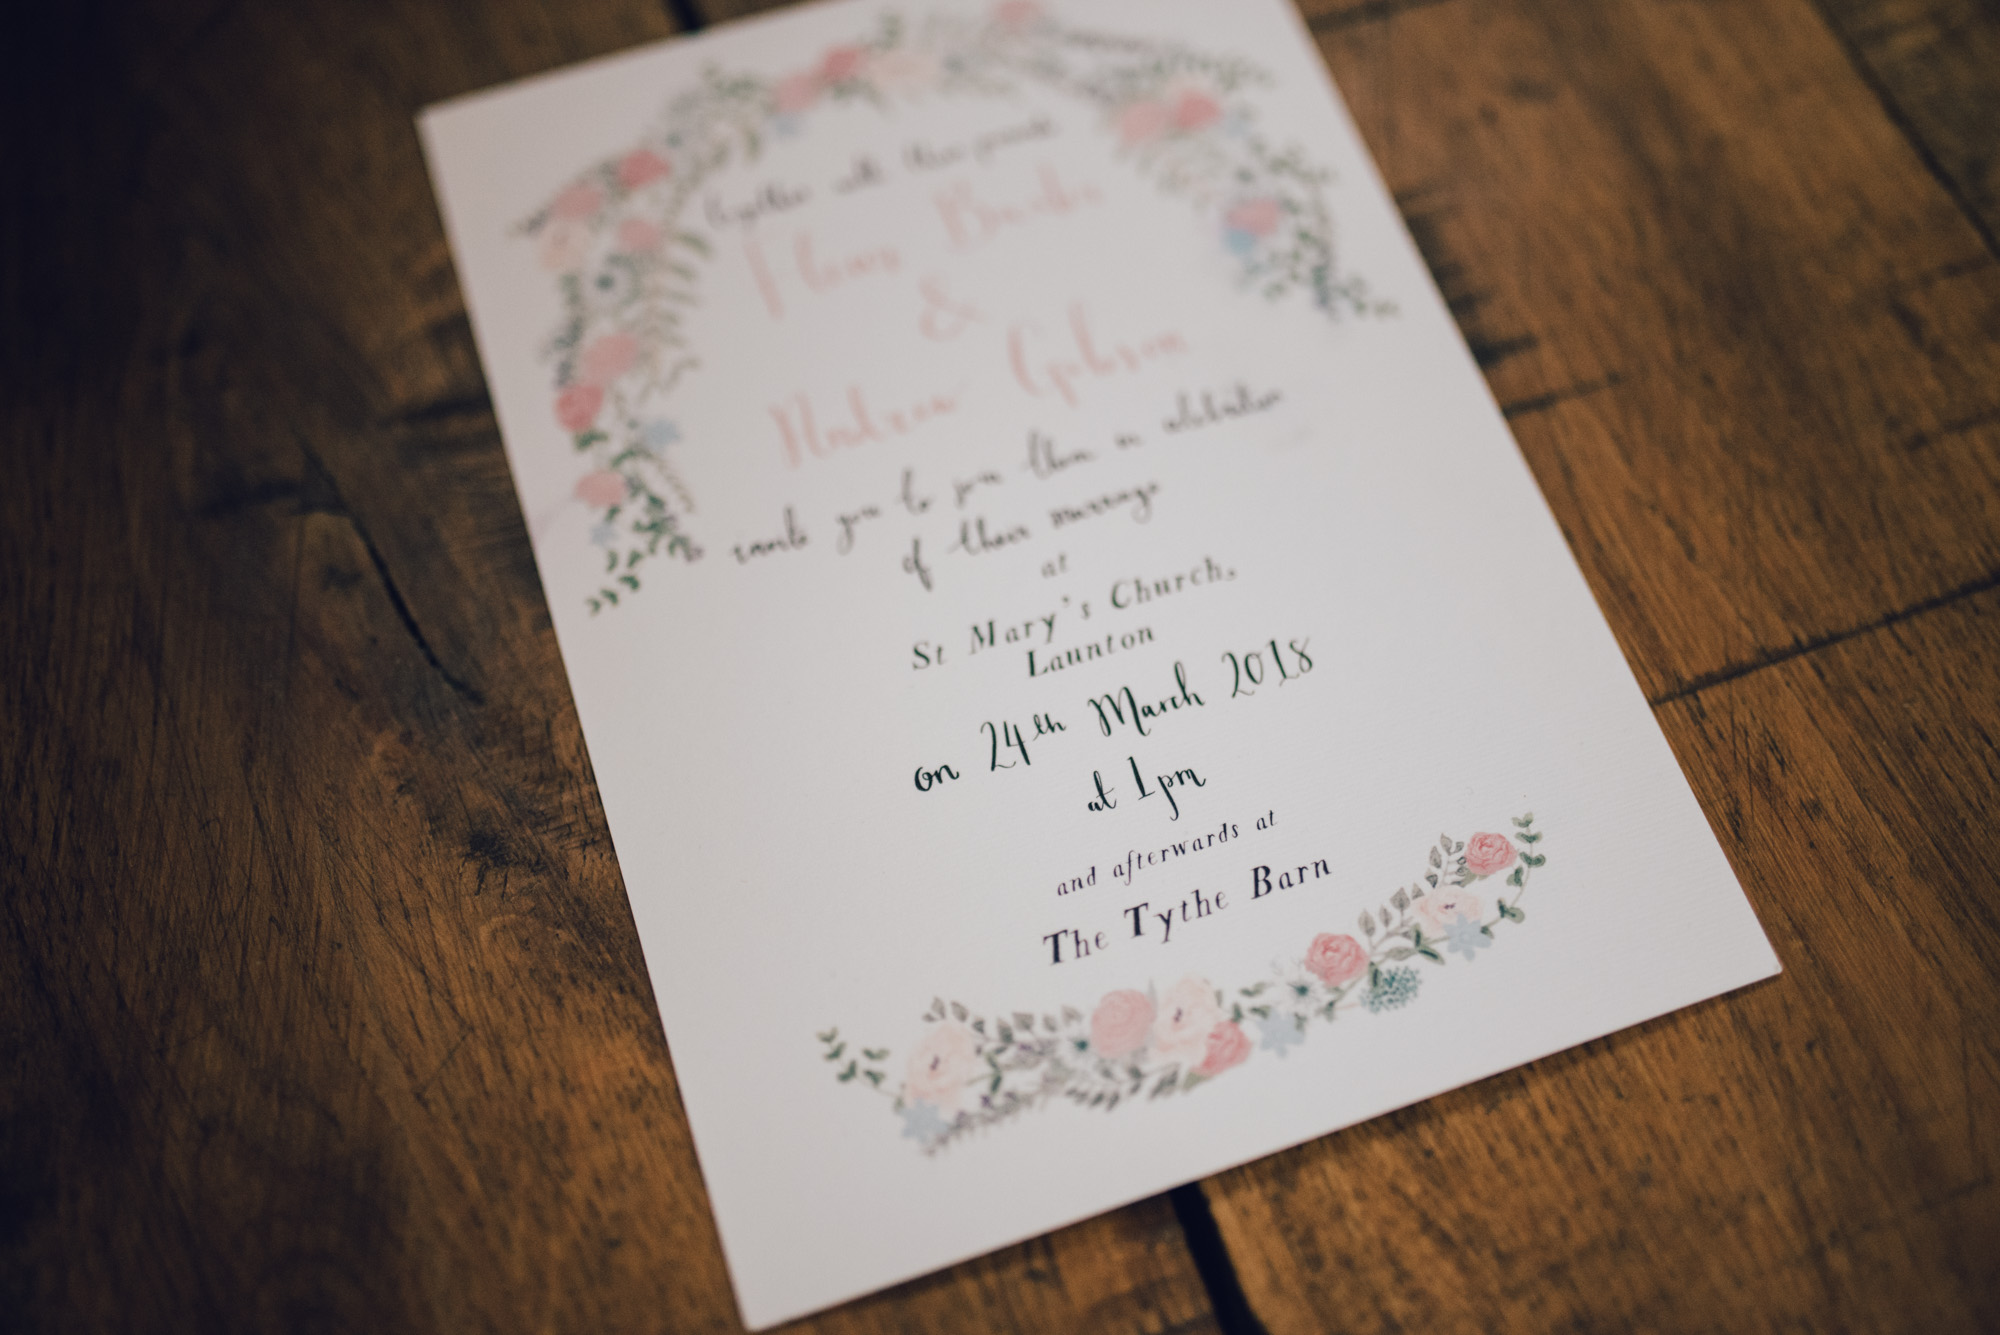 Together with their parents
&
Andrew Gibson
to invite you to join them in celebration
of their marriage
at
St Mary's Church,
Launton
on 24th March 2018
at 1pm
and afterwards at
The Tythe Barn